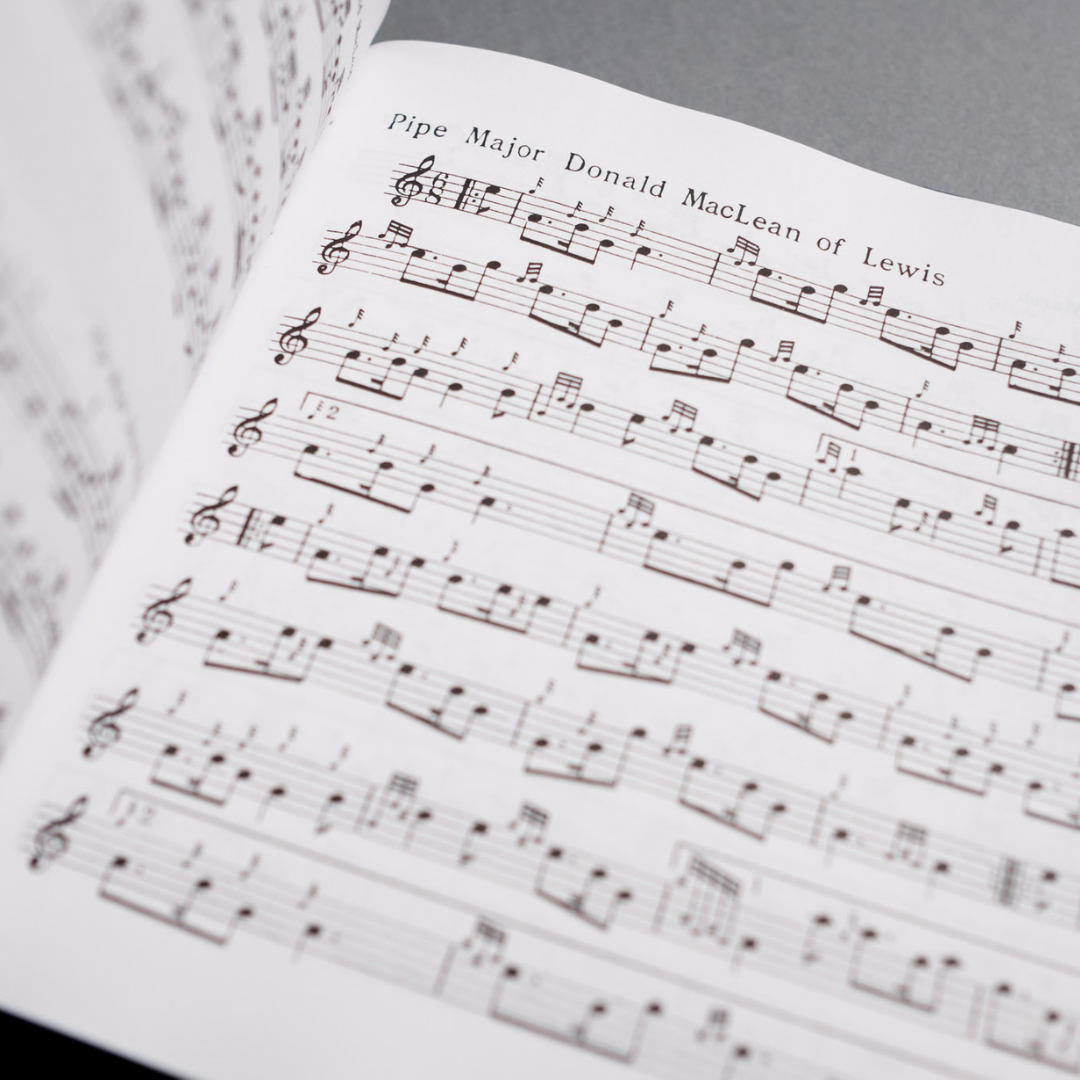 Pipe Major Donald MacLean of Lewis
6
8
1
2
1
2